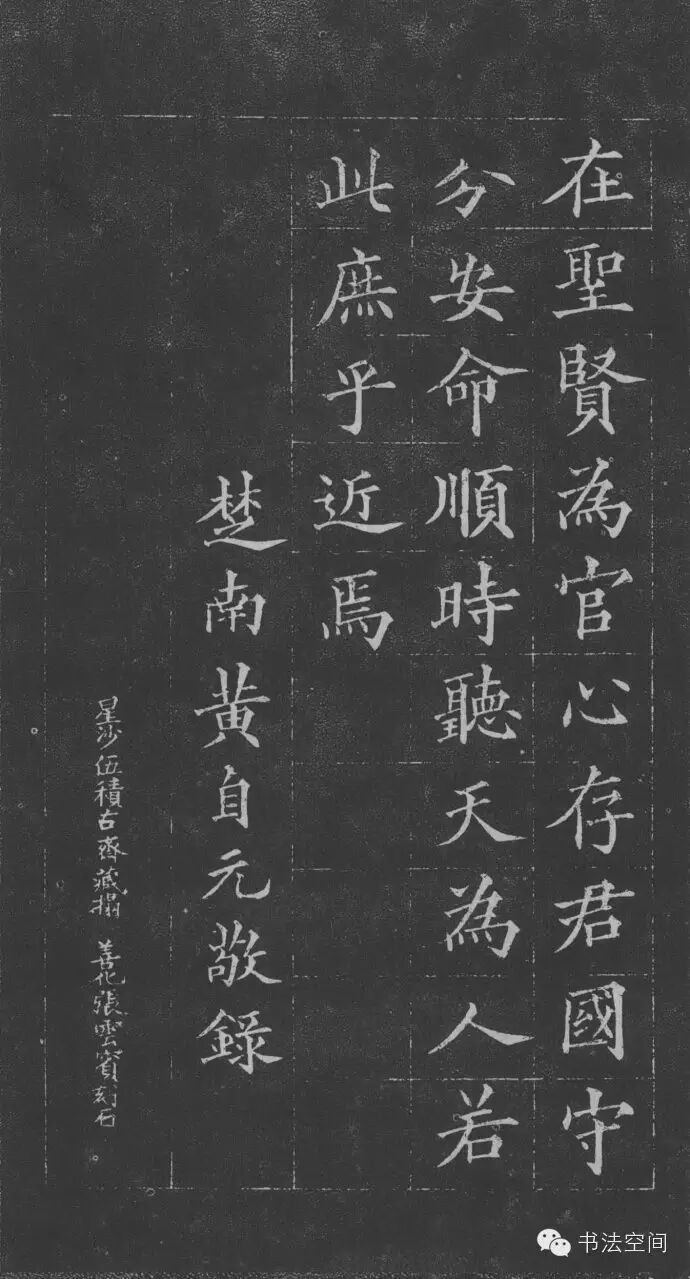 在聖賢為官心存君國守
分安命順時聽天為人若
此庶乎近焉
楚南黄自元敬錄
星沙伍積古齋藏搨 善化張雲賓刻石
书法空间